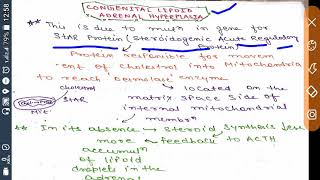 12:58
79%
CONGENITAL LIPOID
ADRENAL HYPERPLASIA
** This is due to mutn in gene for
StAR Protein (Steroidogenic Acute Regulatory
Protein)
Protein responsible for movem
ent of cholestrol into Mitochondria
to reach Desmolase enzyme
cholestrol
located on the
StAR
matrix space side of
Mit.
internal mitochondrial
membrn
** In its absence → Steroid synthesis less
more ← feedback to ACTH
accumuln
of lipoid
droplets in the
adrenal